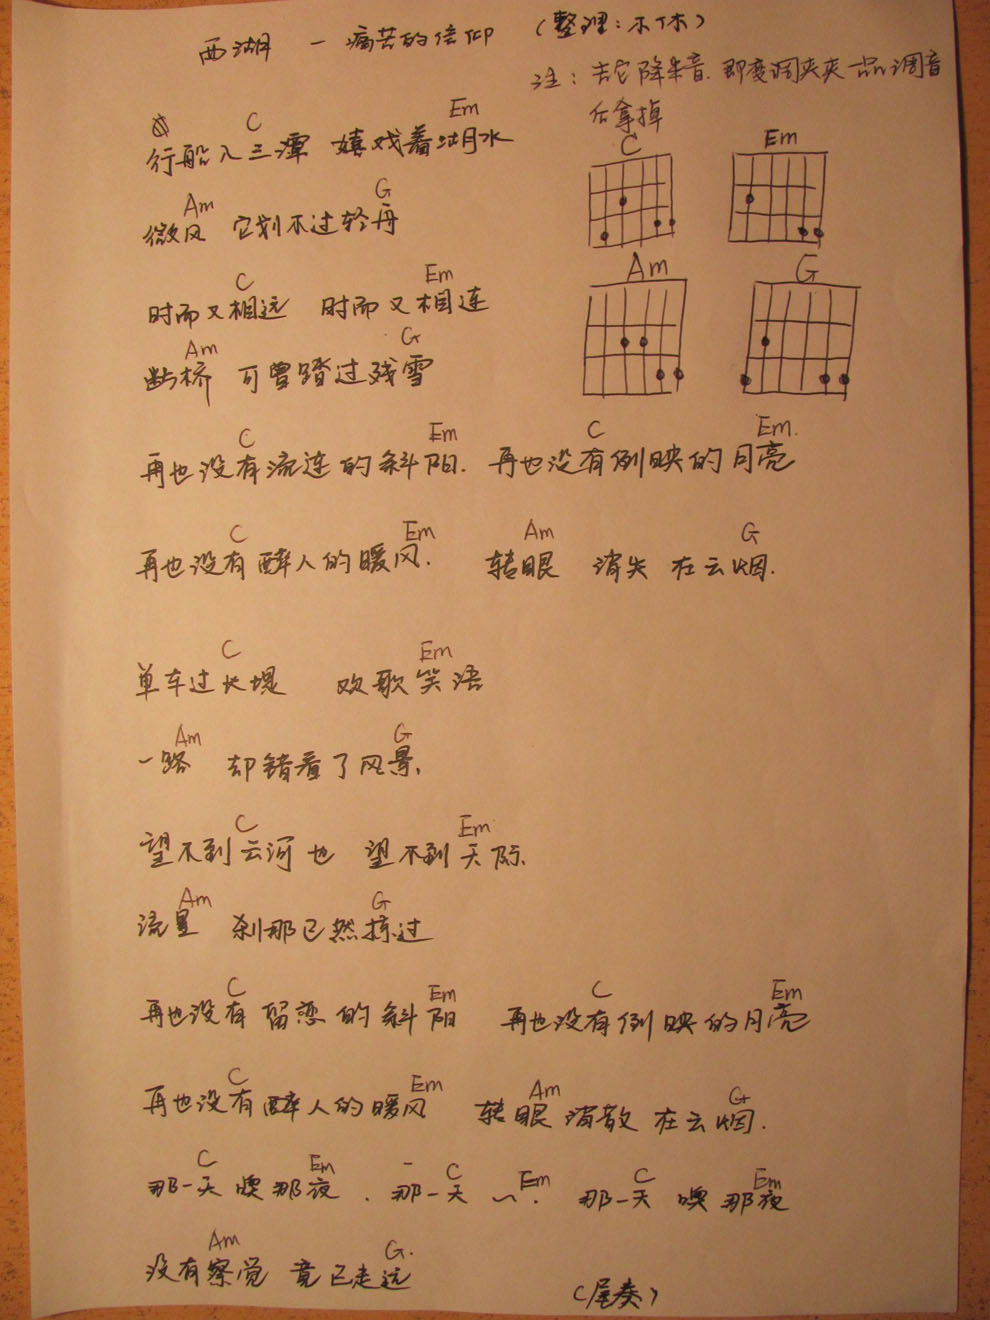 西湖 — 痛苦的信仰 (整理:木休)
注:吉它降半音.即变调夹夹一品调音
后拿掉
C Em
行船入三潭 嬉戏着湖水
C Em
Am G
微风 它划不过轻舟
Am G
C Em
时而又相远 时而又相连
Am G
断桥 可曾踏过残雪
C Em C Em.
再也没有流连的斜阳. 再也没有倒映的月亮
C Em Am G
再也没有醉人的暖风. 转眼 消失 在云烟.
C Em
单车过长堤 欢歌笑语
Am G
一路 却错看了风景.
C Em
望不到云河也 望不到天际.
Am G
流星 刹那已然掠过
C Em C Em
再也没有留恋的斜阳 再也没有倒映的月亮
C Em Am G
再也没有醉人的暖风 转眼 消散 在云烟.
C Em C Em C Em
那一天 噢那夜. 那一天 ~. 那一天 噢 那夜
Am G.
没有察觉 竟已走远
(尾奏)